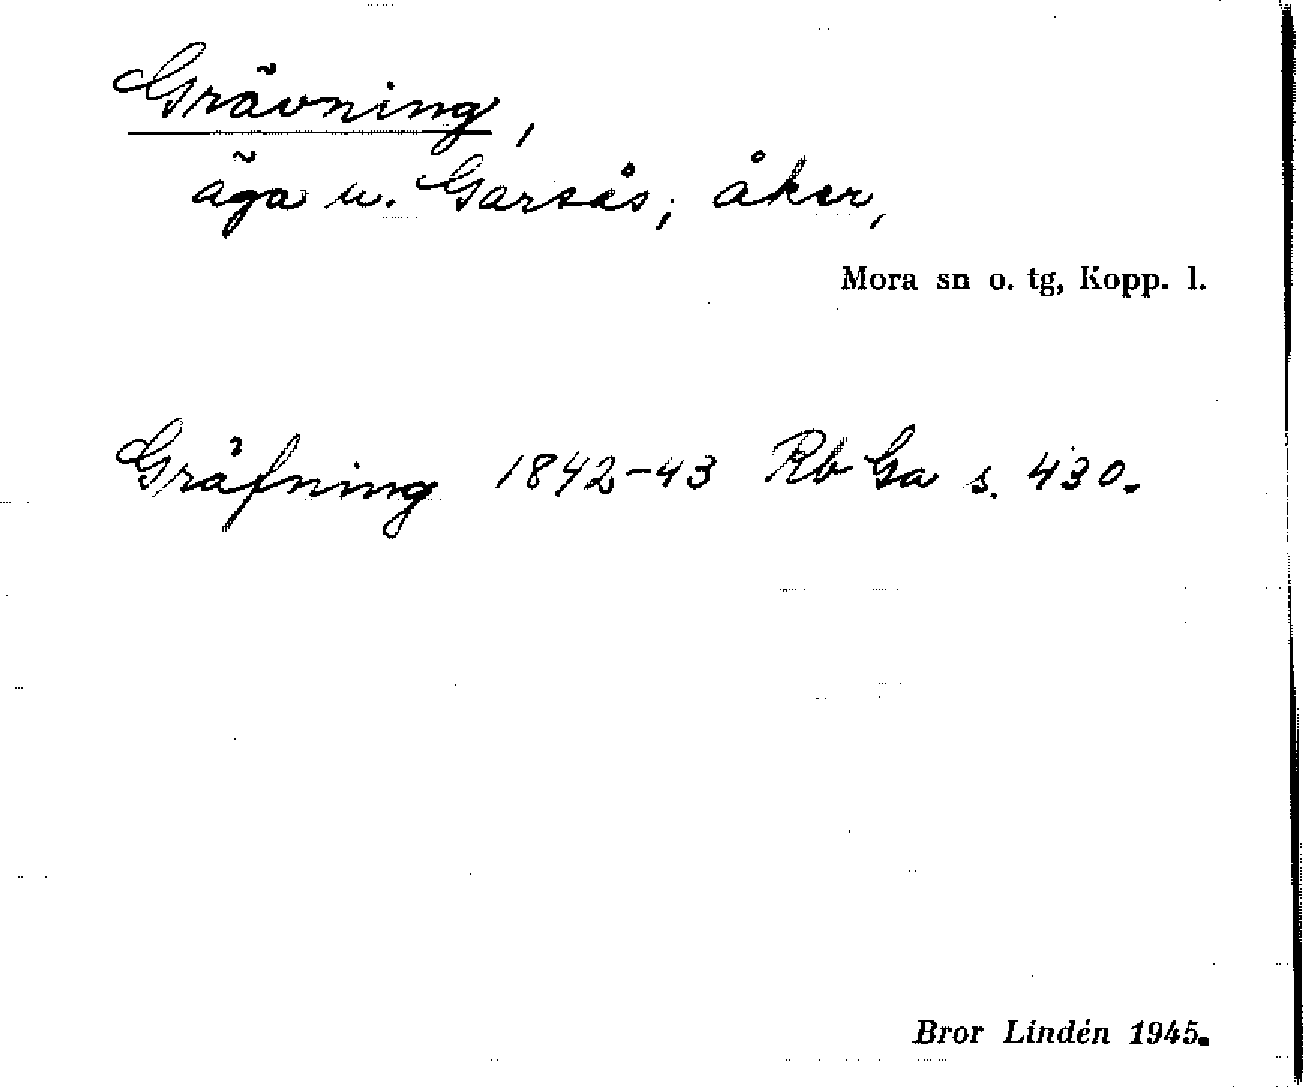 Grävning,
äga u. Garsås, åker,
Mora sn o. tg, Kopp. l.
Gräfning 1842-43 Rb Ga s. 430.
Bror Lindén 1945.